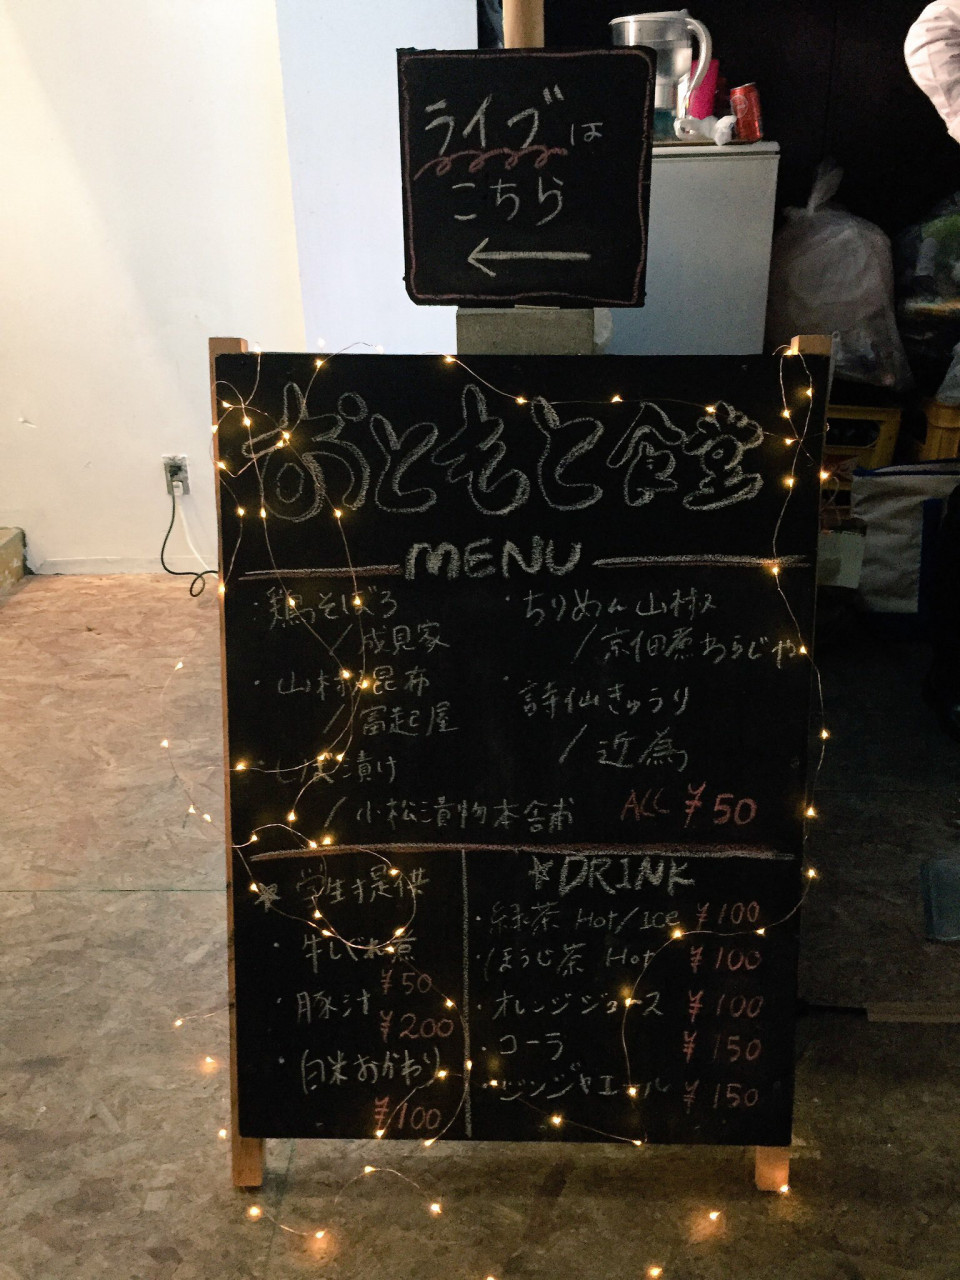 ライブは
こちら
←
おともと食堂
MENU
・鶏そぼろ
/成見家
・山椒昆布
/富起屋
・しば漬け
/小松漬物本舗
・ちりめん山椒
/京佃煮あらじや
・詩仙きゅうり
/近為
ALL ¥50
★学生提供
・牛しぐれ煮
¥50
・豚汁
¥200
・白米おかわり
¥100
☆DRINK
・緑茶 Hot/Ice ¥100
・ほうじ茶 Hot ¥100
・オレンジジュース ¥100
・コーラ ¥150
・ジンジャエール ¥150